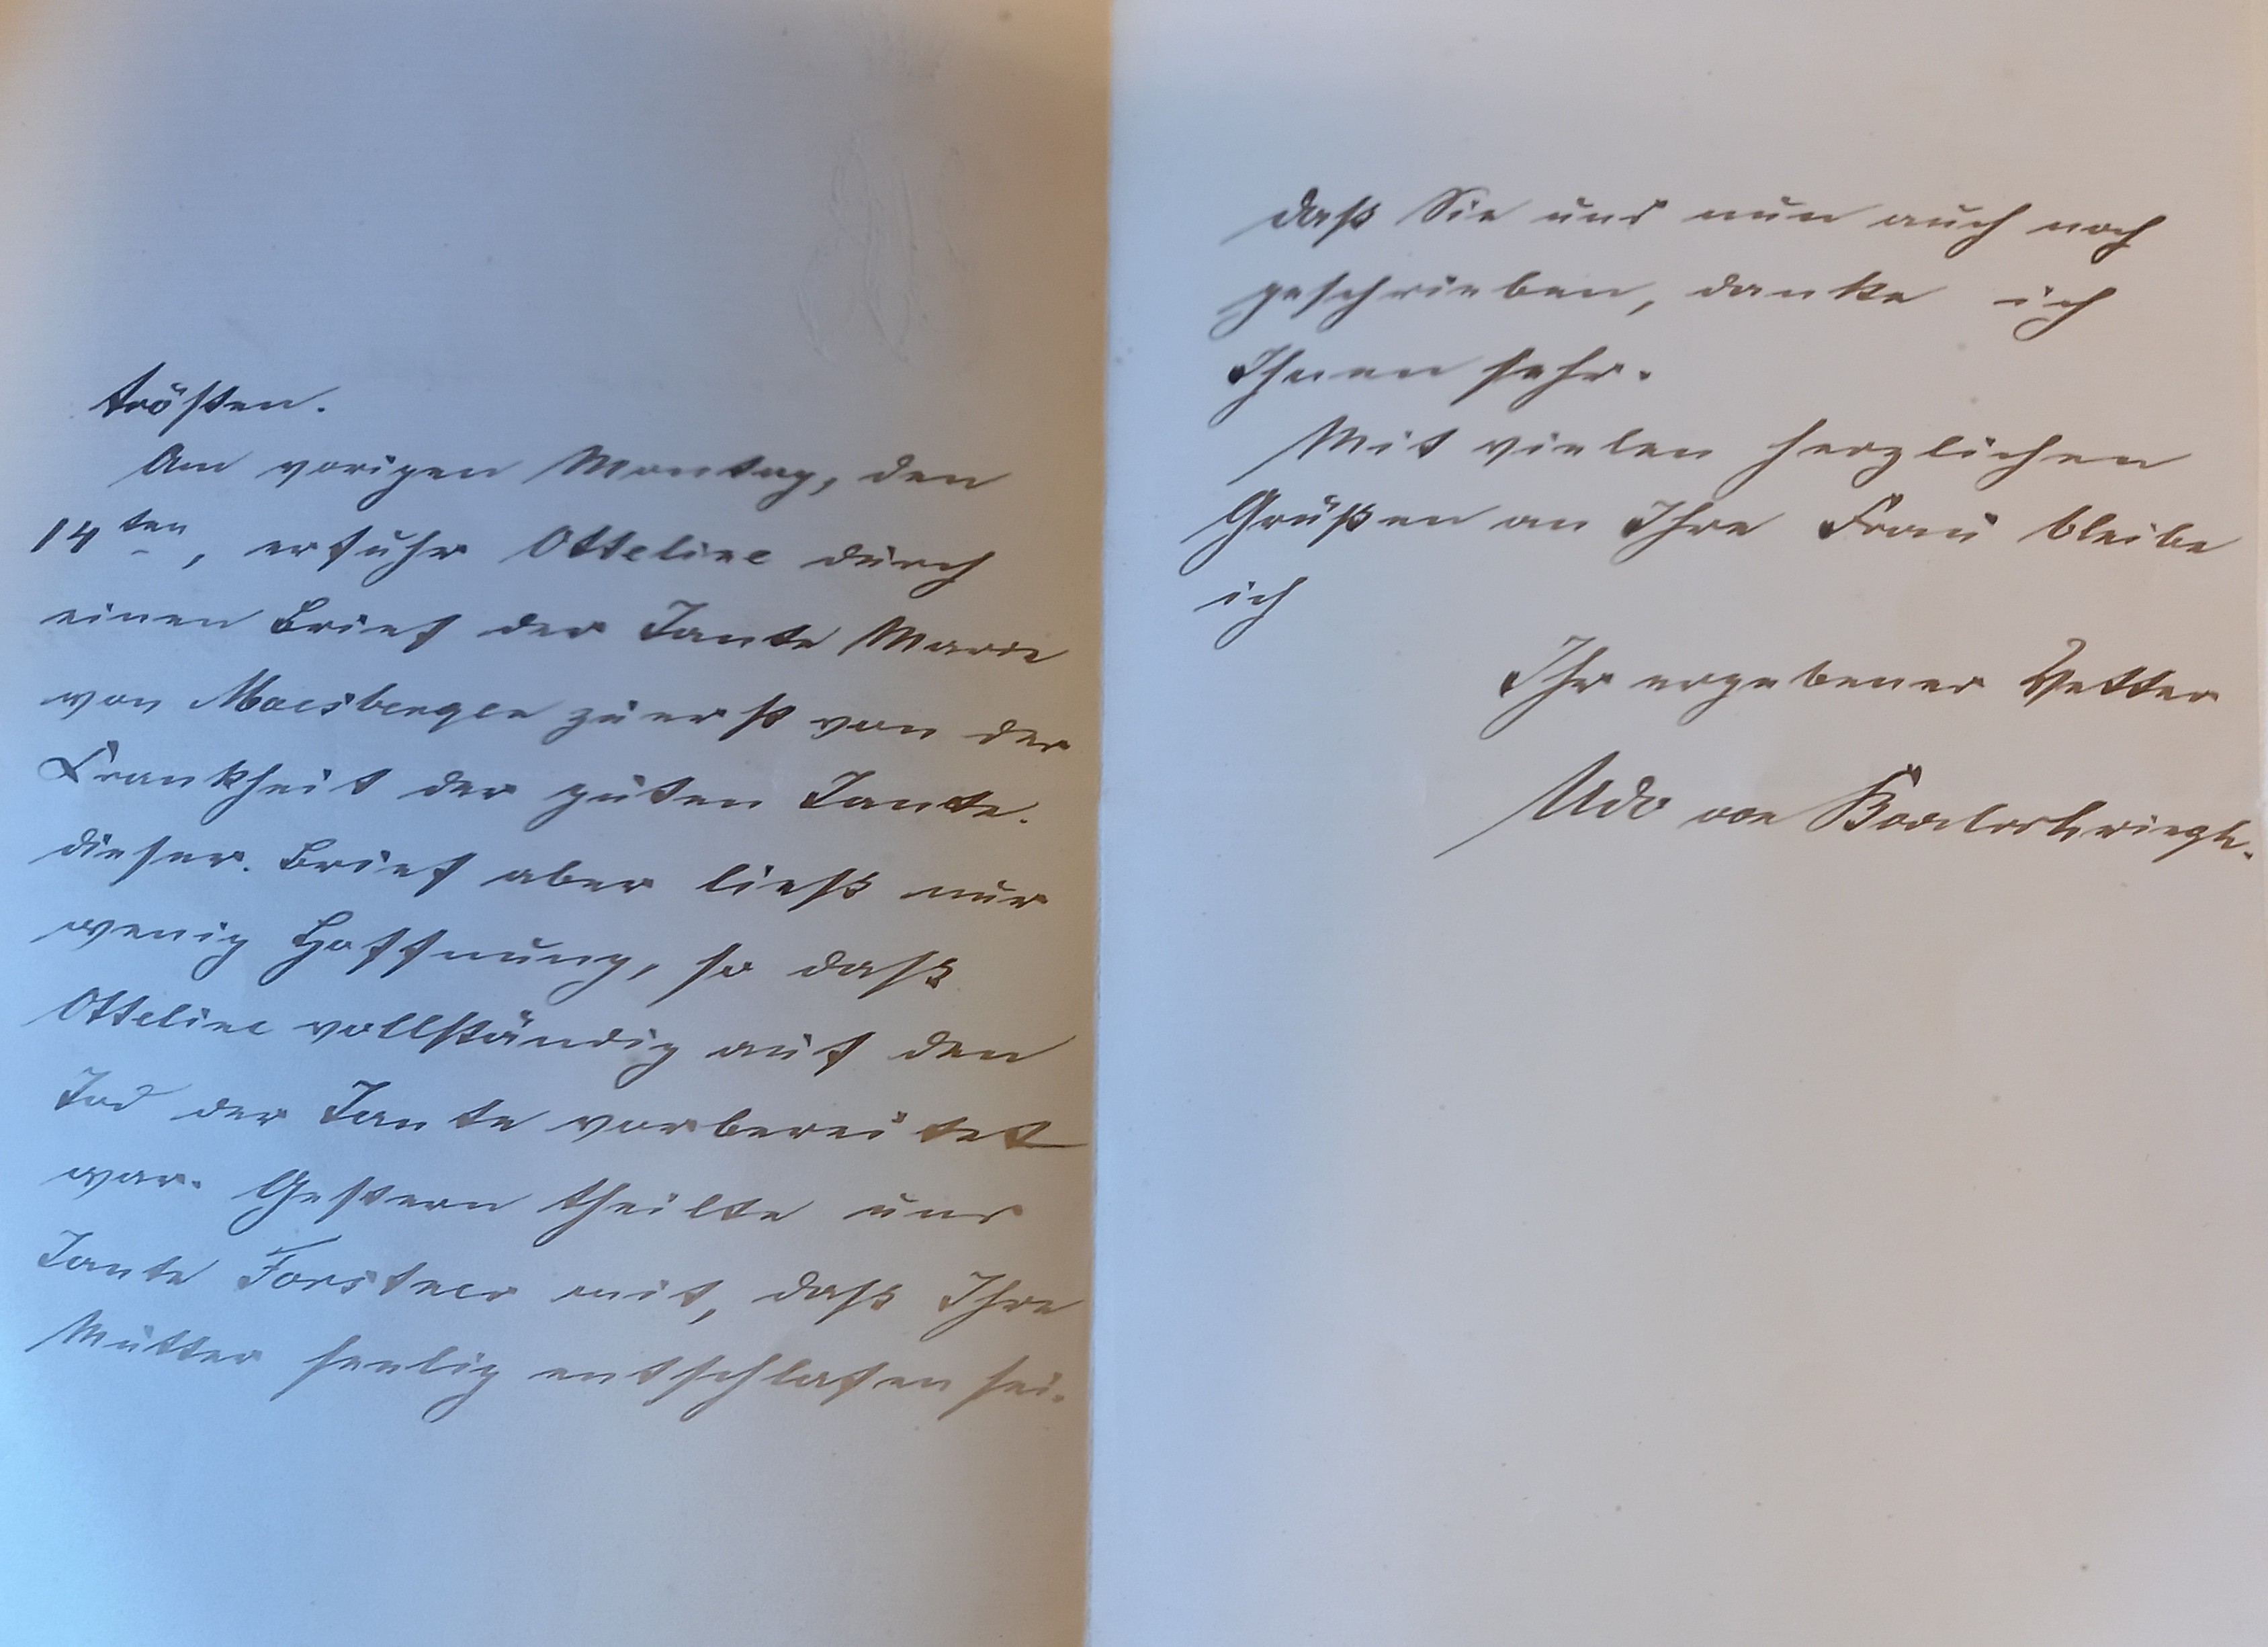 trösten.
Am vorigen Montag, den
14ten, erfuhr Otteline durch
einen Brief der Tante Marie
von Maesbergen zuerst von der
Krankheit der guten Tante.
dieser. Brief aber ließ nur
wenig Hoffnung, so daß
Otteline vollständig auf den
Tod der Tante vorbereitet
war. Gestern theilte uns
Tante Forstner mit, daß Ihre
Mutter seelig entschlafen sei.
daß Sie uns nun auch noch
geschrieben, danke ich
Ihnen sehr.
Mit vielen herzlichen
Grüßen an Ihre Frau bleibe
ich
Ihr ergebener Vetter
Udo von